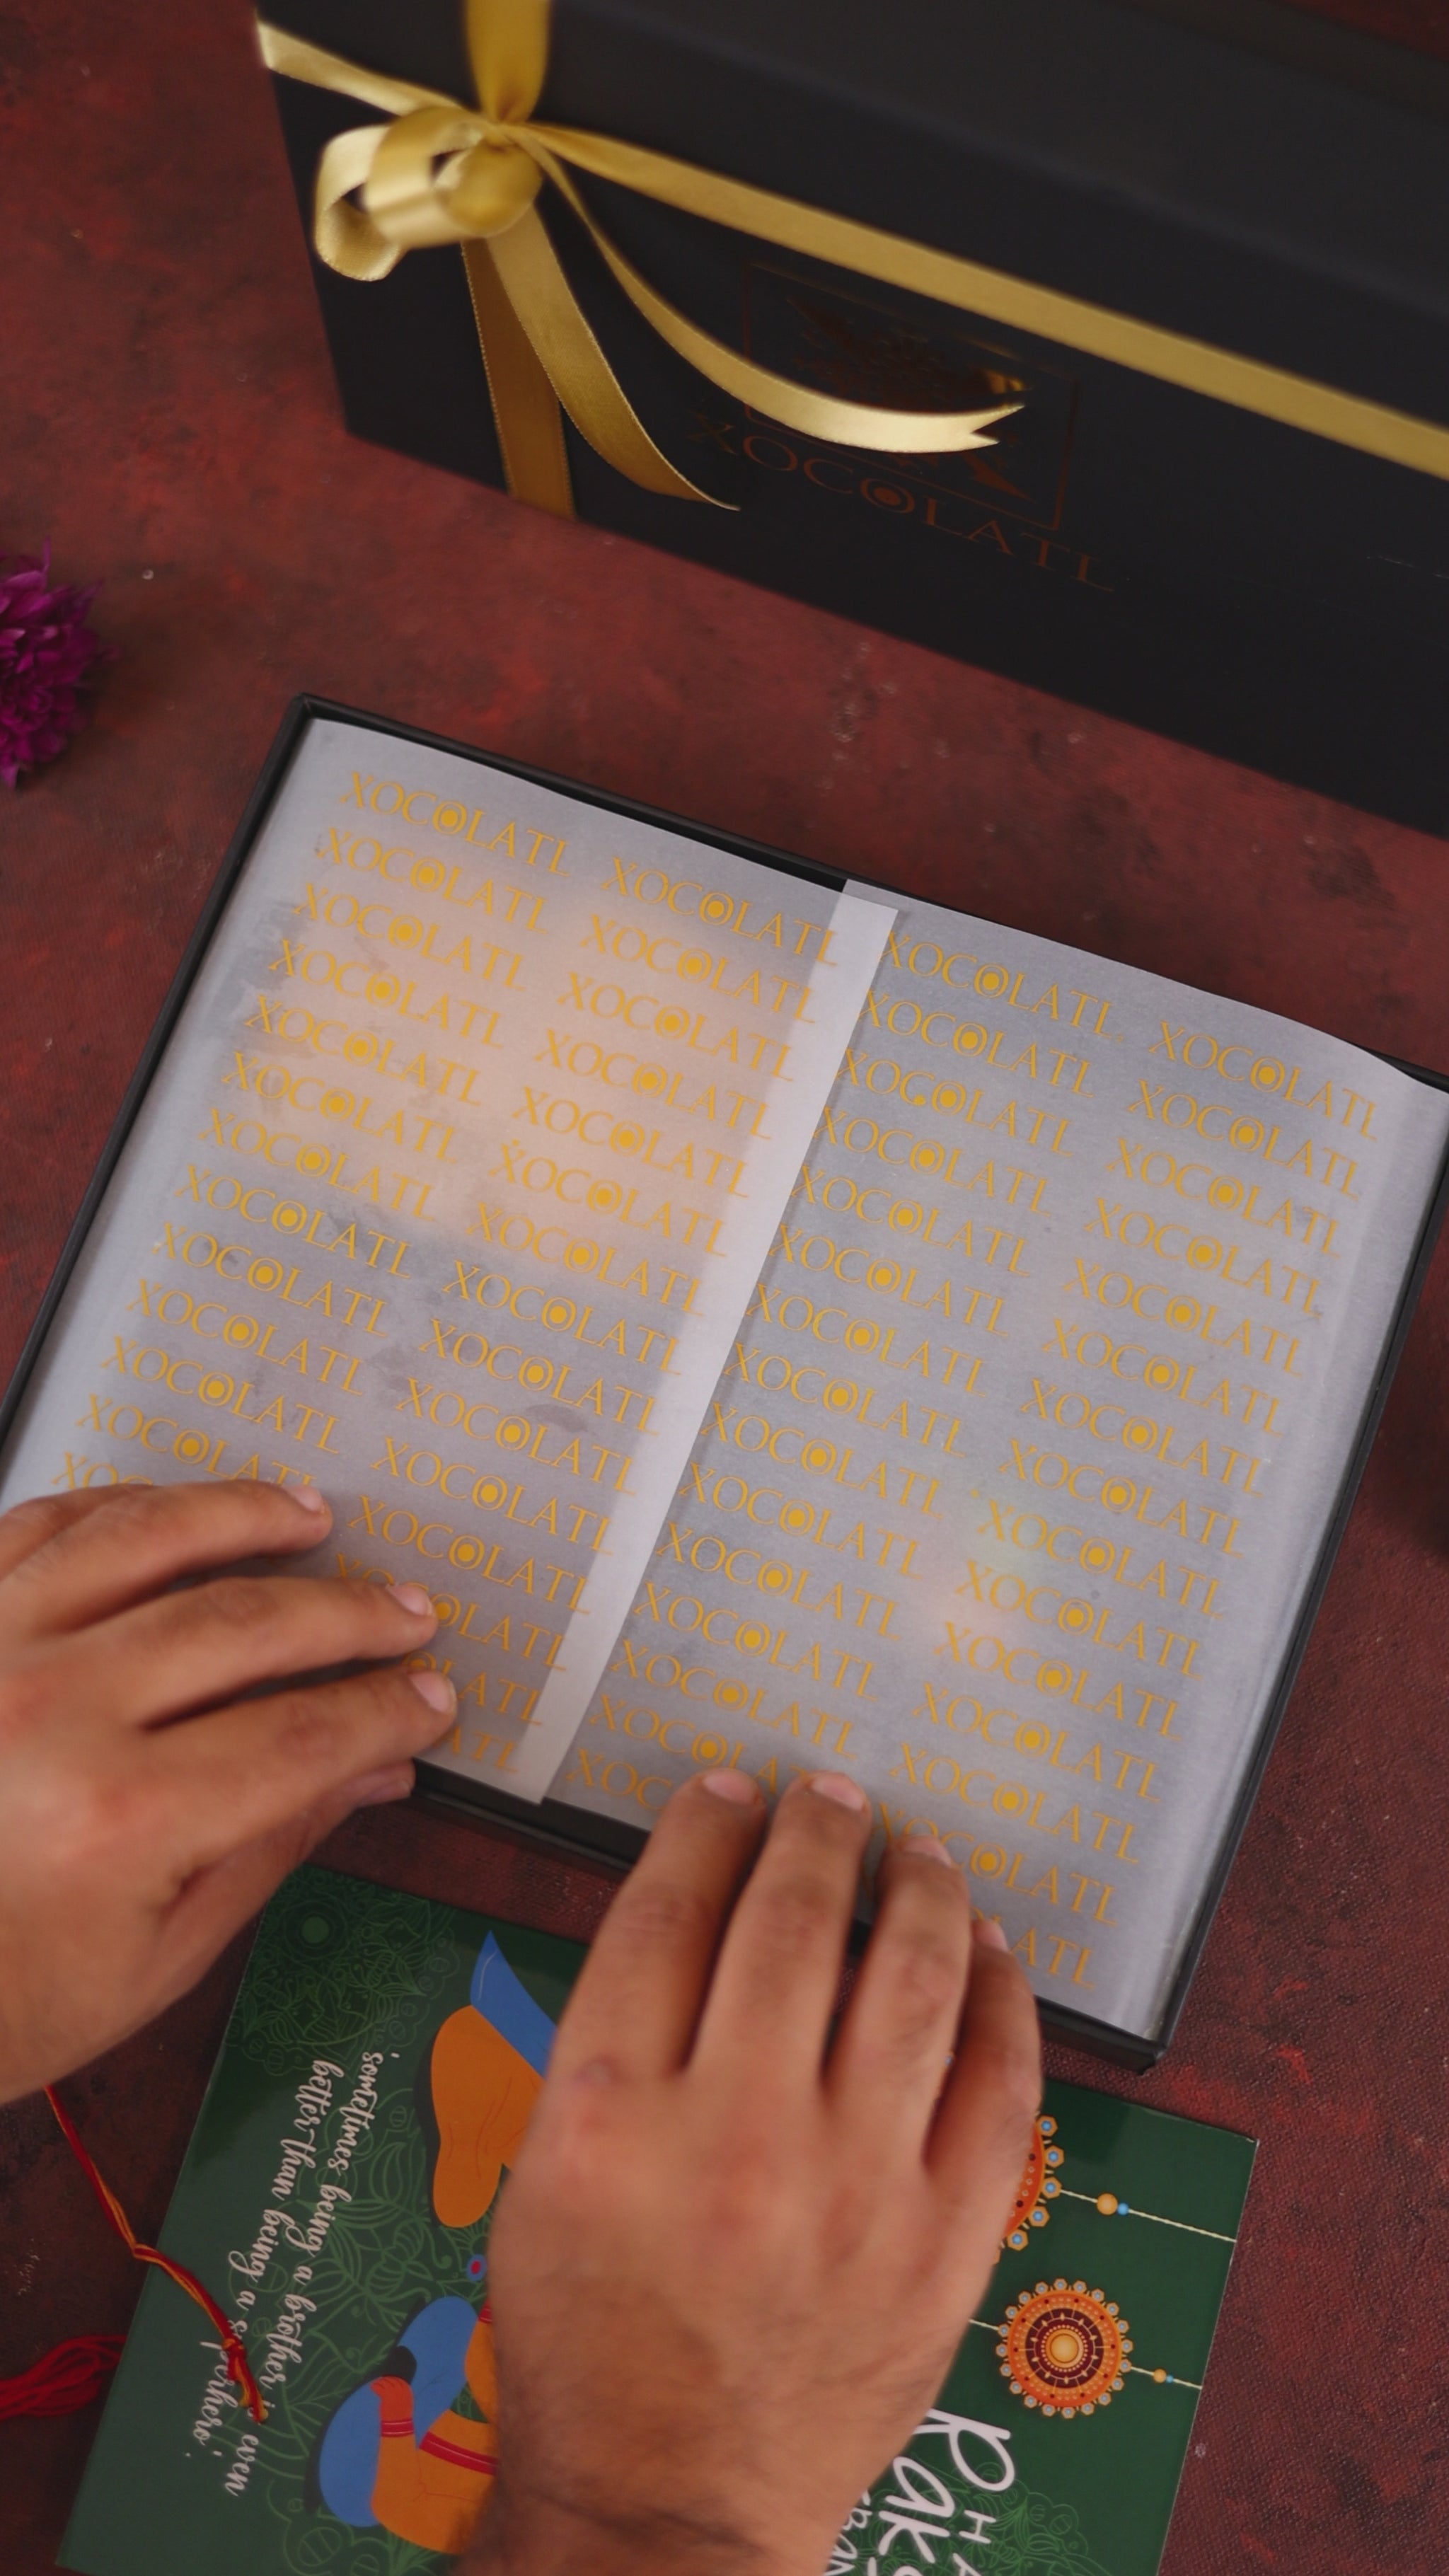 XOCOLATL
XOCOLATL XOCOLATL
XOCOLATL XOCOLATL
XOCOLATL XOCOLATL
XOCOLATL XOCOLATL
XOCOLATL XOCOLATL
XOCOLATL XOCOLATL
XOCOLATL XOCOLATL
XOCOLATL XOCOLATL
XOCOLATL XOCOLATL
XOCOLATL XOCOLATL
XOCOLATL XOCOLATL
XOCOLATL XOCOLATL
OLATL
OLATL
ATL
XOCOLATL XOCOLATL
XOCOLATL XOCOLATL
XOCOLATL XOCOLATL
XOCOLATL XOCOLATL
XOCOLATL XOCOLATL
XOCOLATL XOCOLATL
XOCOLATL XOCOLATL
XOCOLATL XOCOLATL
XOCOLATL XOCOLATL
XOCOLATL XOCOLATL
XOCOLATL XOCOLATL
XOCOLATL XOCOLATL
XOCOLATL XOCOLATL
XOCOLATL XOCOLATL
XOC ATL
'sometimes being a brother is even
better than being a superhero'.
HA
Raks